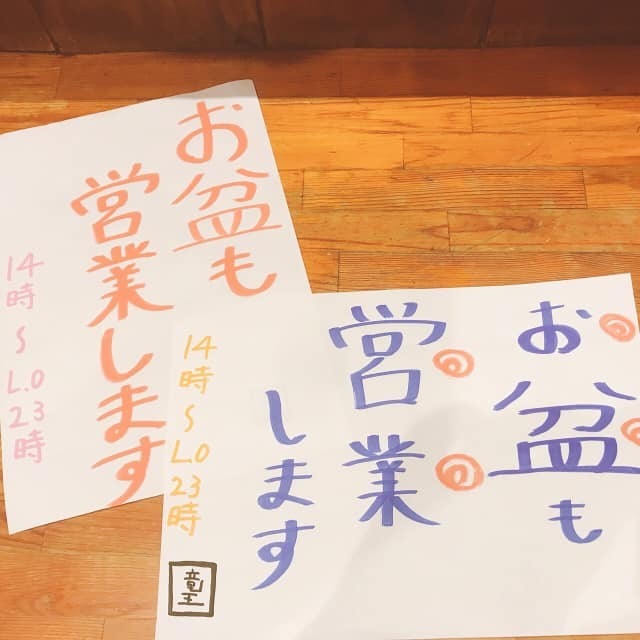 お盆も
営業します
14時～L.O
23時
お盆も
営業
します
14時～L.O
23時